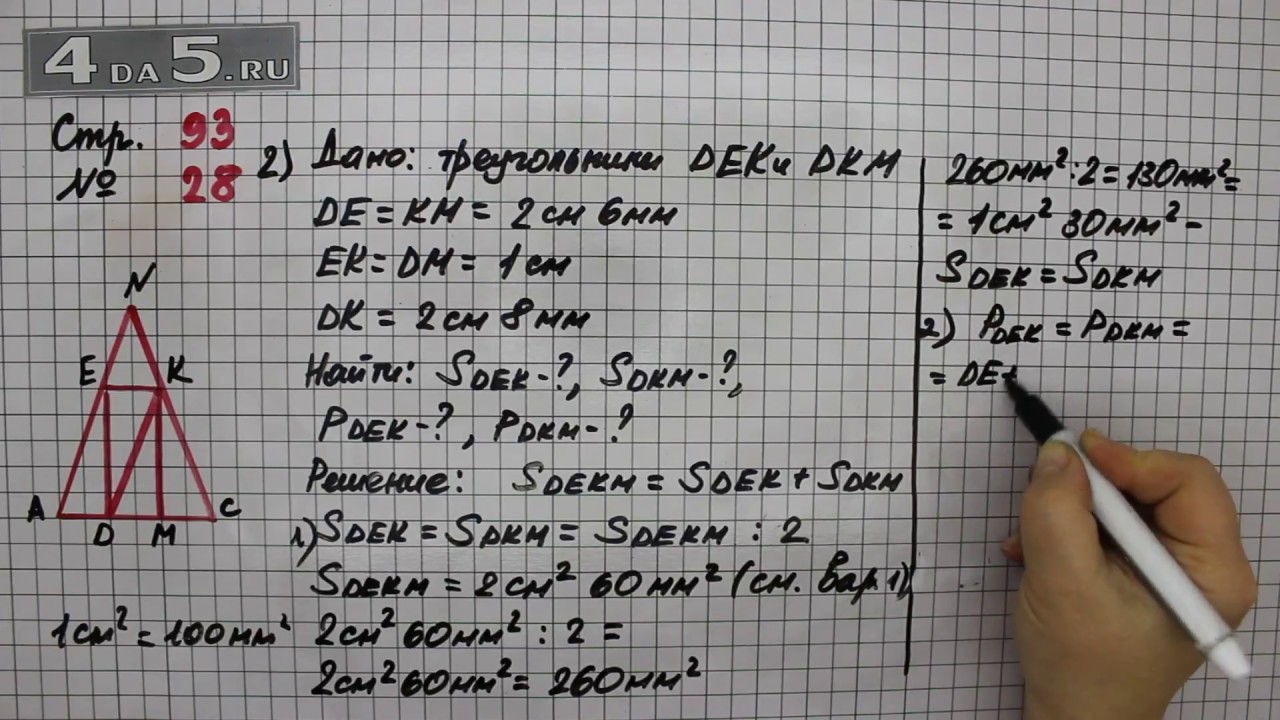 4DA5.RU
Стр. 93
№ 28
N
E K
A D M C
1см² = 100мм²
2) Дано: треугольники DEK и DKM
DE = KM = 2см 6мм
EK = DM = 1см
DK = 2см 8мм
Найти: SDEK-?, SDKM-?,
PDEK-?, PDKM-?
Решение: SDEKM = SDEK + SDKM
1) SDEK = SDKM = SDEKM : 2
SDEKM = 2см² 60мм² (см. Вар. 1)
2см² 60мм² : 2 =
2см² 60мм² = 260мм²
260мм² : 2 = 130мм² =
= 1см² 30мм² -
SDEK = SDKM
2) PDEK = PDKM =
= DE+